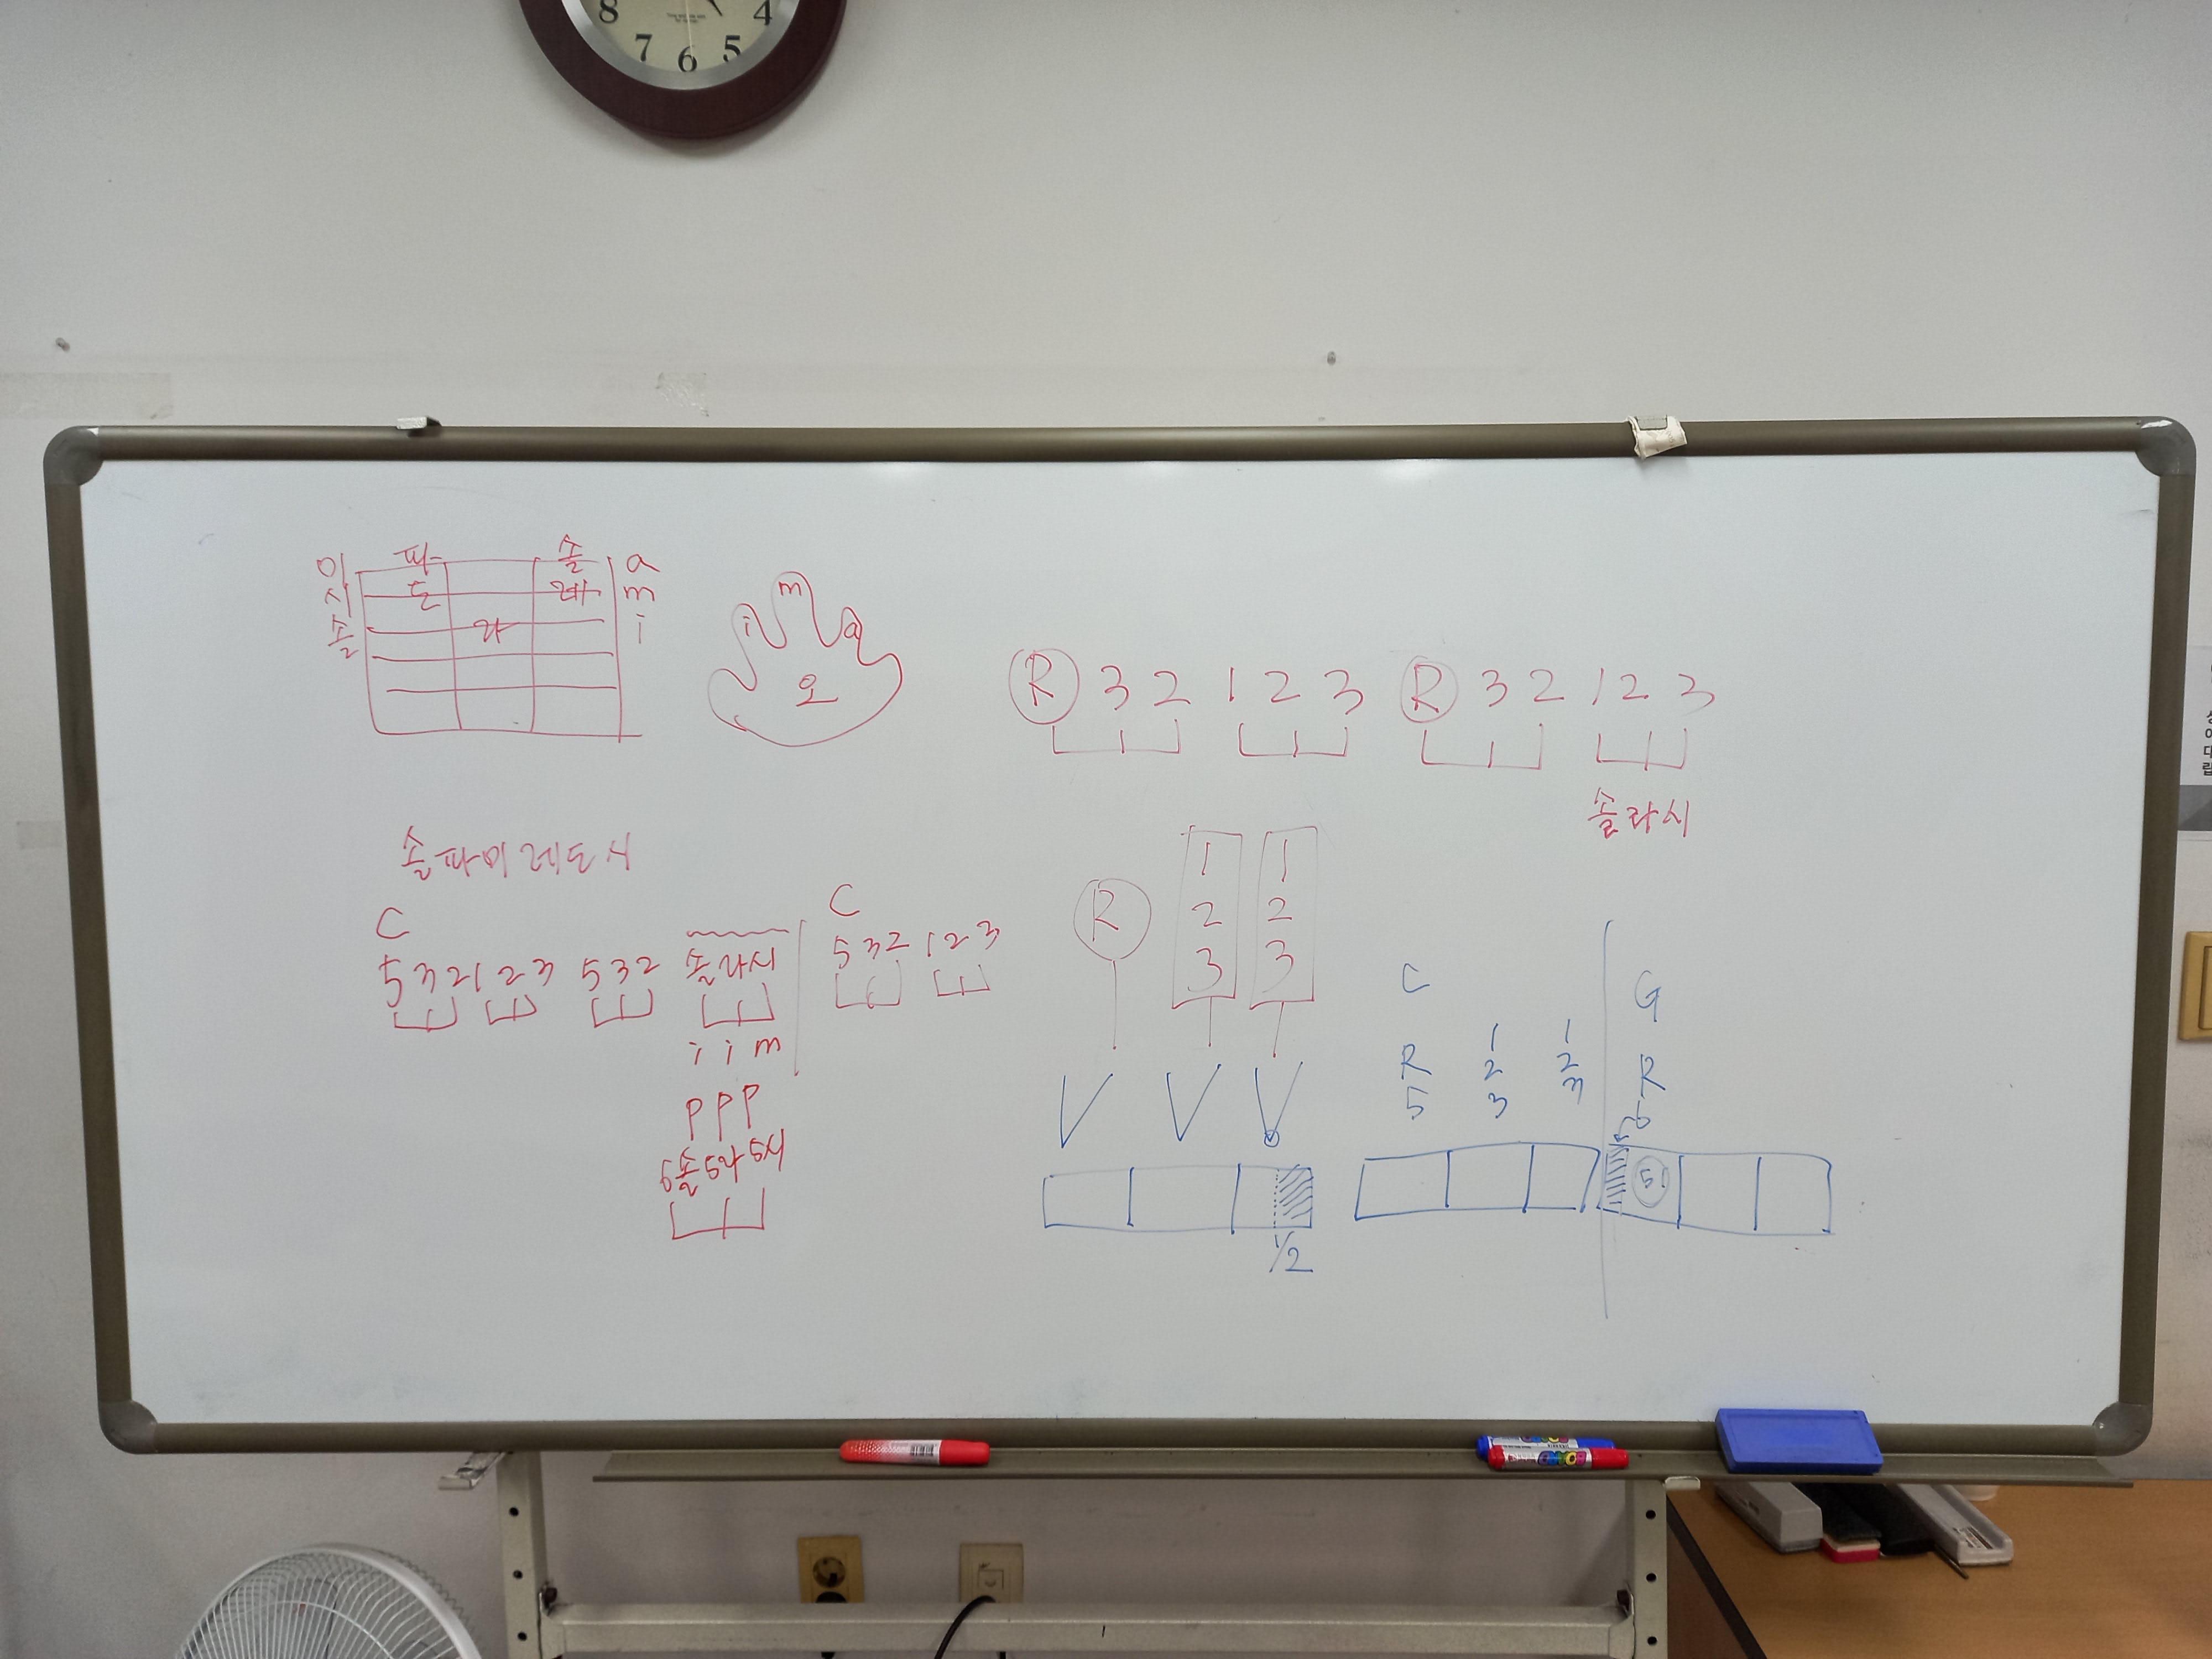 8 7 6 5 4
파 솔 a
미 도 레 m
시 라 i
솔
m
i a
오
R 3 2 1 2 3 R 3 2 1 2 3
솔라시
솔파미레도시
C
5 3 2 1 2 3 5 3 2 솔라시
i i m
P P P
5솔 5라 5시
C
5 3 2 1 2 3
R 1 1
2 2
3 3
1/2
C G
R 1 1 R
5 2 2 5
3 3
5